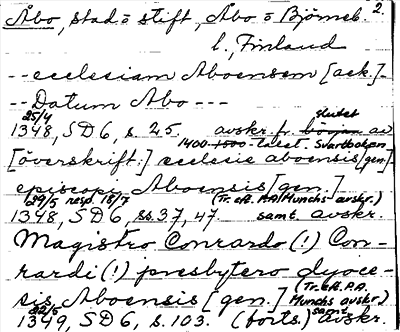 2.
Åbo, stad o stift, Åbo o Björneb.
l., Finland
-- ecclesiam Aboensem [ack.] -
-- Datum Abo ---
25/4 slutet
1348, SD 6, s. 25. avskr. fr. början av
1400 1500-talet. Svartboken
[överskrift:] ecclesie aboensis [gen.]
episcopi Aboensis [gen.]
29/5 resp. 18/7 (Tr. e. P.A. Munchs avskr.)
1348, SD 6, ss. 37, 47. samt. avskr.
Magistro Conrardo (!) Con-
rardi (!) presbytero dyoce-
sis Aboensis [gen.] (Tr. e. P.A.
Munchs avskr.)
22/5 samt
1349, SD 6, s. 103. (forts.) avskr.